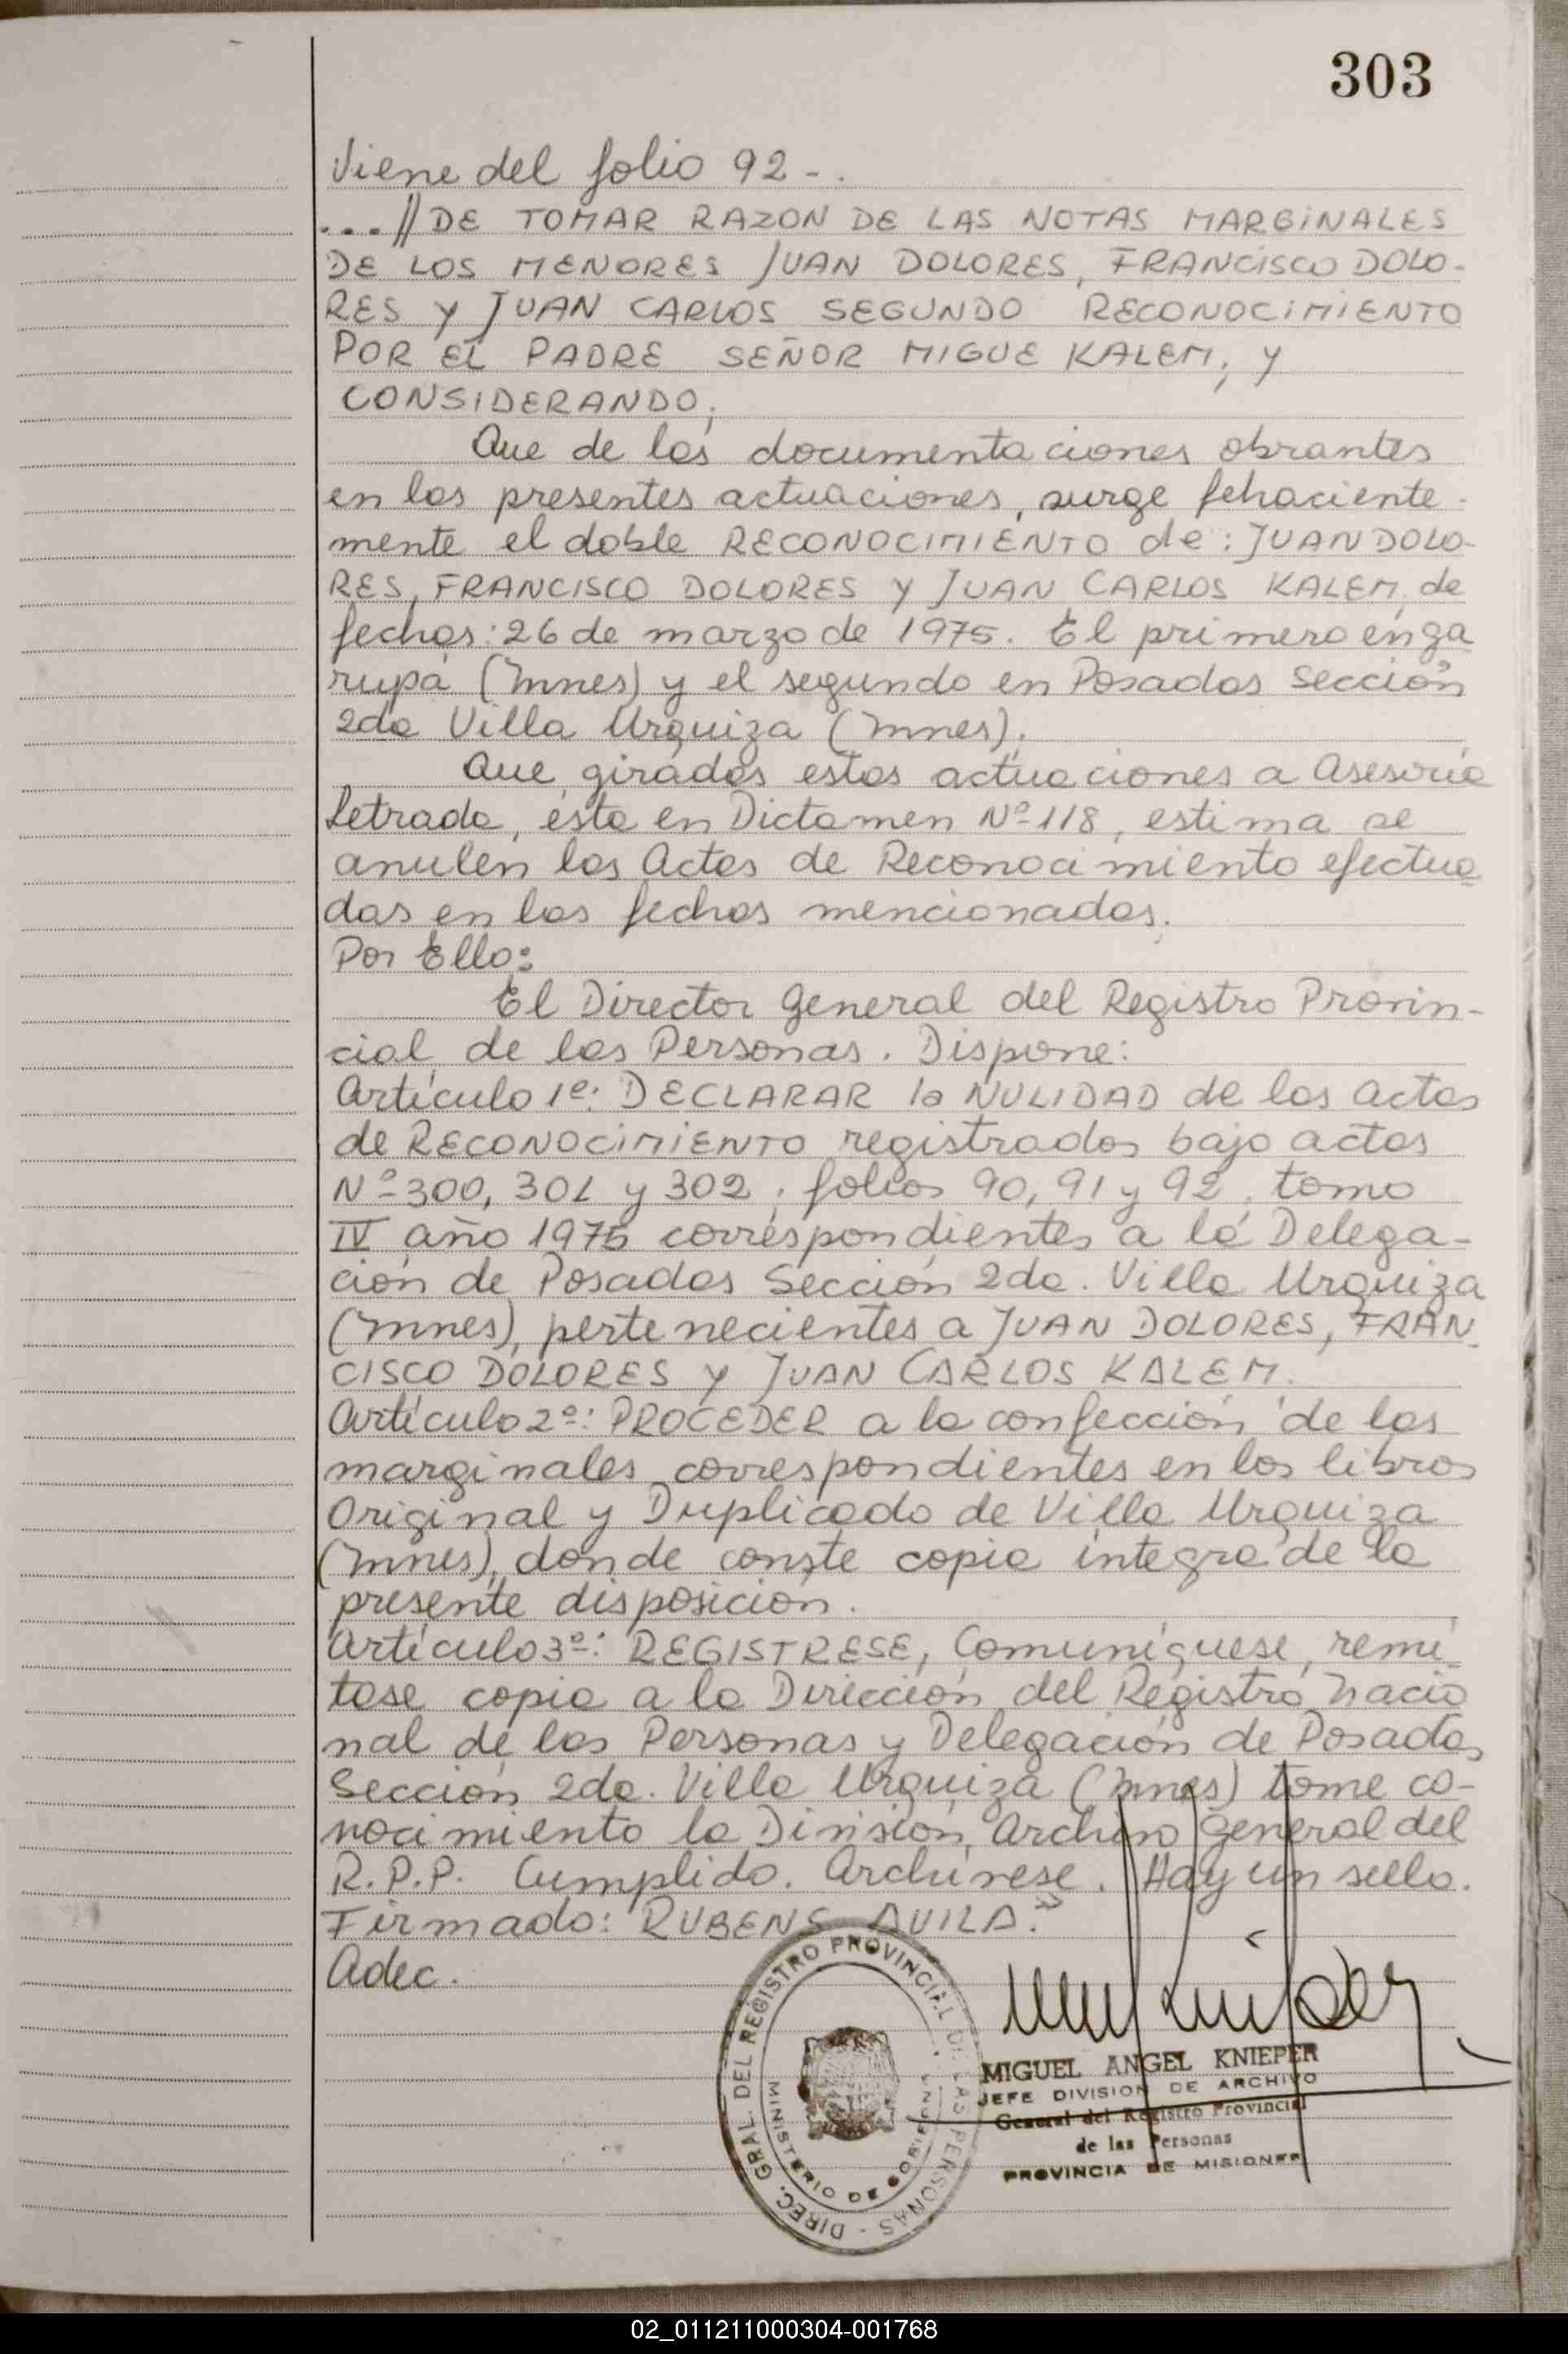 303
Viene del folio 92-.
...//DE TOMAR RAZON DE LAS NOTAS MARGINALES
DE LOS MENORES JUAN DOLORES, FRANCISCO DOLO-
RES Y JUAN CARLOS SEGUNDO RECONOCIMIENTO
POR EL PADRE SEÑOR MIGUE KALEM; Y
CONSIDERANDO;
Que de las documentaciones obrantes
en las presentes actuaciones, surge fehaciente-
mente el doble RECONOCIMIENTO de: JUAN DOLO-
RES, FRANCISCO DOLORES Y JUAN CARLOS KALEM, de
fechas: 26 de marzo de 1975. El primero en ga
rupá (Mnes) y el segundo en Posadas Sección
2da Villa Urquiza (Mnes).
Que, giradas estas actuaciones a Asesoría
Letrada, ésta en Dictamen Nº 118, estima se
anulen las Actas de Reconocimiento efectua
das en las fechas mencionadas.
Por Ello:
El Director General del Registro Provin-
cial de las Personas. Dispone:
Artículo 1º: DECLARAR la NULIDAD de las actas
de RECONOCIMIENTO registrados bajo actas
Nº-300, 301 y 302, folios 90, 91 y 92, tomo
IV año 1975 correspondientes a la Delega-
ción de Posadas Sección 2da. Villa Urquiza
(Mnes), pertenecientes a JUAN DOLORES, FRAN-
CISCO DOLORES Y JUAN CARLOS KALEM.
Artículo 2º: PROCEDER a la confección de las
marginales correspondientes en los libros
Original y Duplicado de Villa Urquiza
(Mnes), donde conste copia íntegra de la
presente disposición.
Artículo 3º: REGISTRESE, Comuníquese, remí-
tase copia a la Dirección del Registro Nacio
nal de las Personas y Delegación de Posadas
Sección 2da. Villa Urquiza (Mnes) tome co-
nocimiento la División Archivo General del
R.P.P. Cumplido. Archívese. Hay un sello.
Firmado: RUBENS AVILA."
Adec.
DIREC. GRAL. DEL REGISTRO PROVINCIAL DE LAS PERSONAS -
MINISTERIO DE GOBIERNO
MIGUEL ANGEL KNIEPER
JEFE DIVISION DE ARCHIVO
General del Registro Provincial
de las Personas
PROVINCIA DE MISIONES
02_011211000304-001768